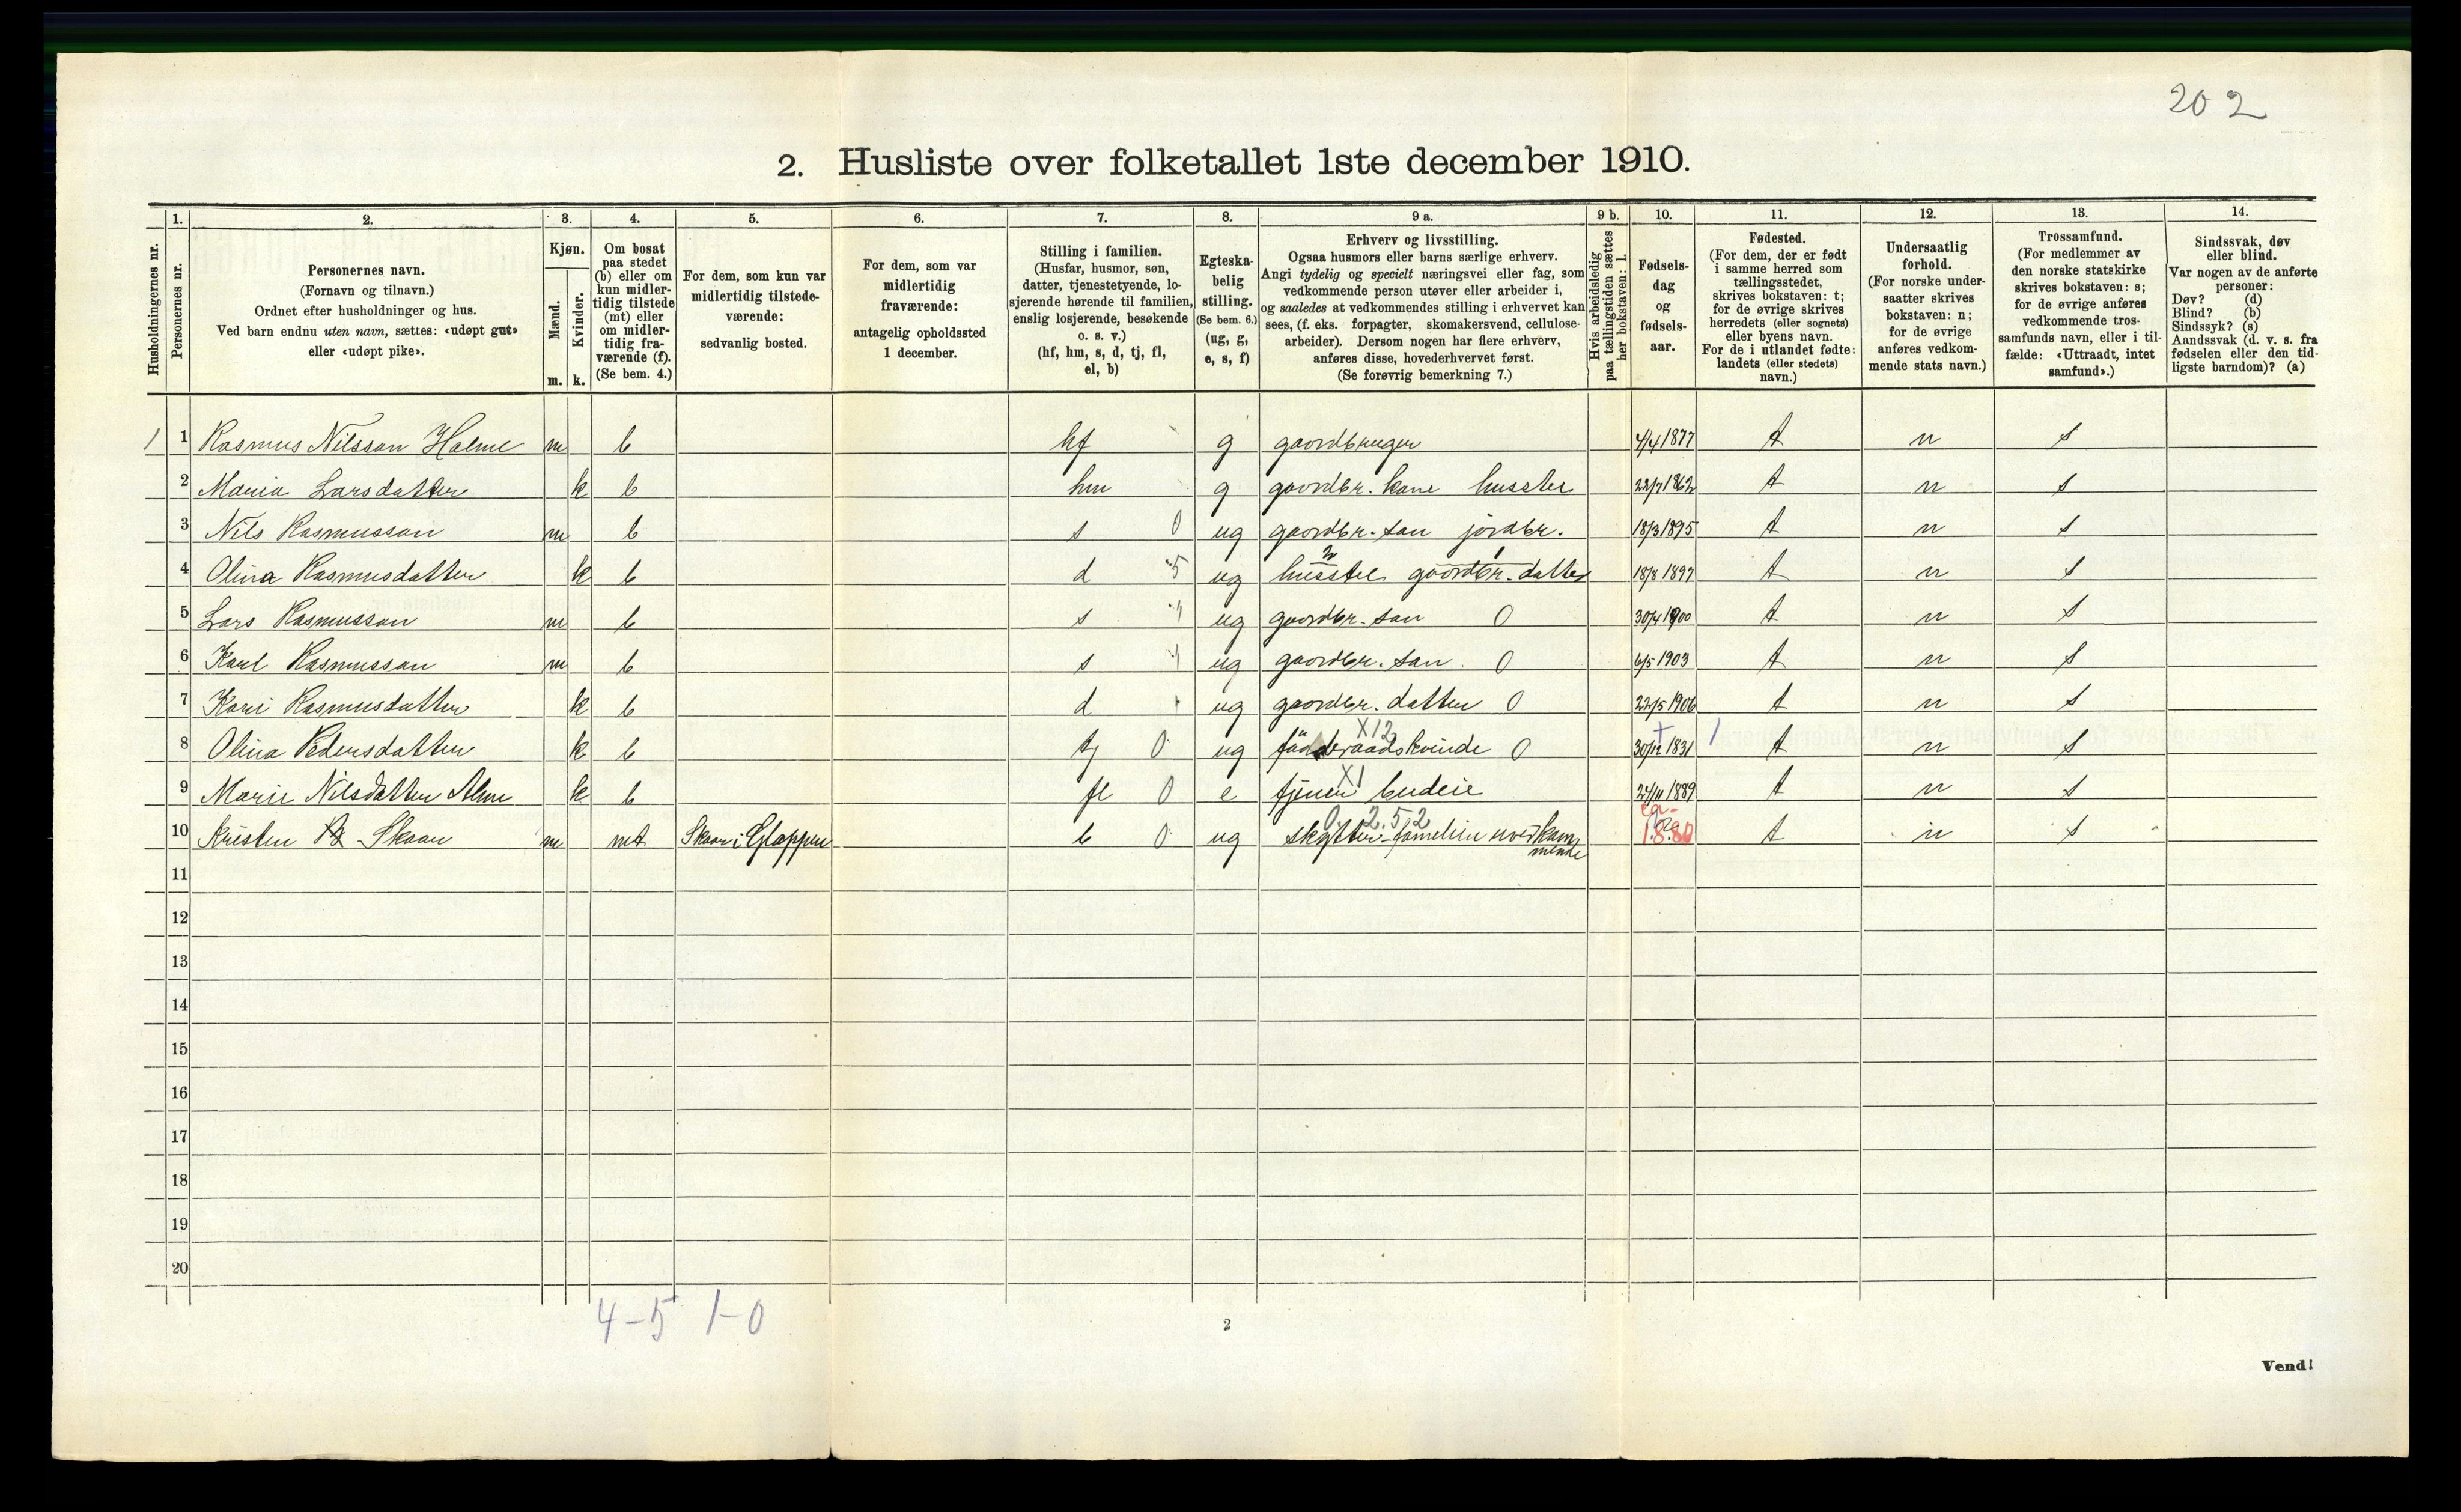 202
2. Husliste over folketallet 1ste december 1910.
Husholdningernes nr.
1.
Personernes nr.
2.
Personernes navn.
(Fornavn og tilnavn.)
Ordnet efter husholdninger og hus.
Ved barn endnu uten navn, sættes: «udøpt gut»
eller «udøpt pike».
3.
Kjøn.
Mænd.
m.
Kvinder.
k.
4.
Om bosat
paa stedet
(b) eller om
kun midler-
tidig tilstede
(mt) eller
om midler-
tidig fra-
værende (f).
(Se bem. 4.)
5.
For dem, som kun var
midlertidig tilstede-
værende:
sedvanlig bosted.
6.
For dem, som var
midlertidig
fraværende:
antagelig opholdssted
1 december.
7.
Stilling i familien.
(Husfar, husmor, søn,
datter, tjenestetyende, lo-
sjerende hørende til familien,
enslig losjerende, besøkende
o. s. v.)
(hf, hm, s, d, tj, fl,
el, b)
8.
Egteska-
belig
stilling.
(Se bem. 6.)
(ug, g,
e, s, f)
9 a.
Erhverv og livsstilling.
Ogsaa husmors eller barns særlige erhverv.
Angi tydelig og specielt næringsvei eller fag, som
vedkommende person utøver eller arbeider i,
og saaledes at vedkommendes stilling i erhvervet kan
sees, (f. eks. forpagter, skomakersvend, cellulose-
arbeider). Dersom nogen har flere erhverv,
anføres disse, hovederhvervet først.
(Se forøvrig bemerkning 7.)
9 b.
Hvis arbeidsledig
paa tællingstiden sættes
her bokstaven: l.
10.
Fødsels-
dag
og
fødsels-
aar.
11.
Fødested.
(For dem, der er født
i samme herred som
tællingsstedet,
skrives bokstaven: t;
for de øvrige skrives
herredets (eller sognets)
eller byens navn.
For de i utlandet fødte:
landets (eller stedets)
navn.)
12.
Undersaatlig
forhold.
(For norske under-
saatter skrives
bokstaven: n;
for de øvrige
anføres vedkom-
mende stats navn.)
13.
Trossamfund.
(For medlemmer av
den norske statskirke
skrives bokstaven: s;
for de øvrige anføres
vedkommende tros-
samfunds navn, eller i til-
fælde: «Uttraadt, intet
samfund».)
14.
Sindssvak, døv
eller blind.
Var nogen av de anførte
personer:
Døv? (d)
Blind? (b)
Sindssyk? (s)
Aandssvak (d. v. s. fra
fødselen eller den tid-
ligste barndom)? (a)
1 1 Rasmus Nilsson Holme m b hf g gaardbruger 4/4 1877 t n s
2 Maria Larsdatter k b hm g gaardbr. kone husstel 22/7 1862 t n s
3 Nils Rasmusson m b s 0 ug gaardbr. søn jordbr. 18/3 1895 t n s
4 Olina Rasmusdatter k b d 5 ug husstel gaardbr. datter 18/8 1897 t n s
5 Lars Rasmusson m b s ug gaardbr. søn 0 30/4 1900 t n s
6 Karl Rasmusson m b s ug gaardbr. søn 0 6/5 1903 t n s
7 Kari Rasmusdatter k b d ug gaardbr. datter 0 22/5 1906 t n s
X12
8 Olina Pedersdatter k b tj 0 ug føderaadskvinde 0 30/12 1831 t n s
X1
9 Marie Nilsdatter Alme k b fl 0 e tjener budeie 24/11 1889 t n s
0. 2. 5 2
10 Kristen Skaar m mt Skaar i Gloppen b 0 ug skytter-familien uvedkom
mende 1880 t n s
11
12
13
14
15
16
17
18
19
20
4-5 1-0
2
Vend!